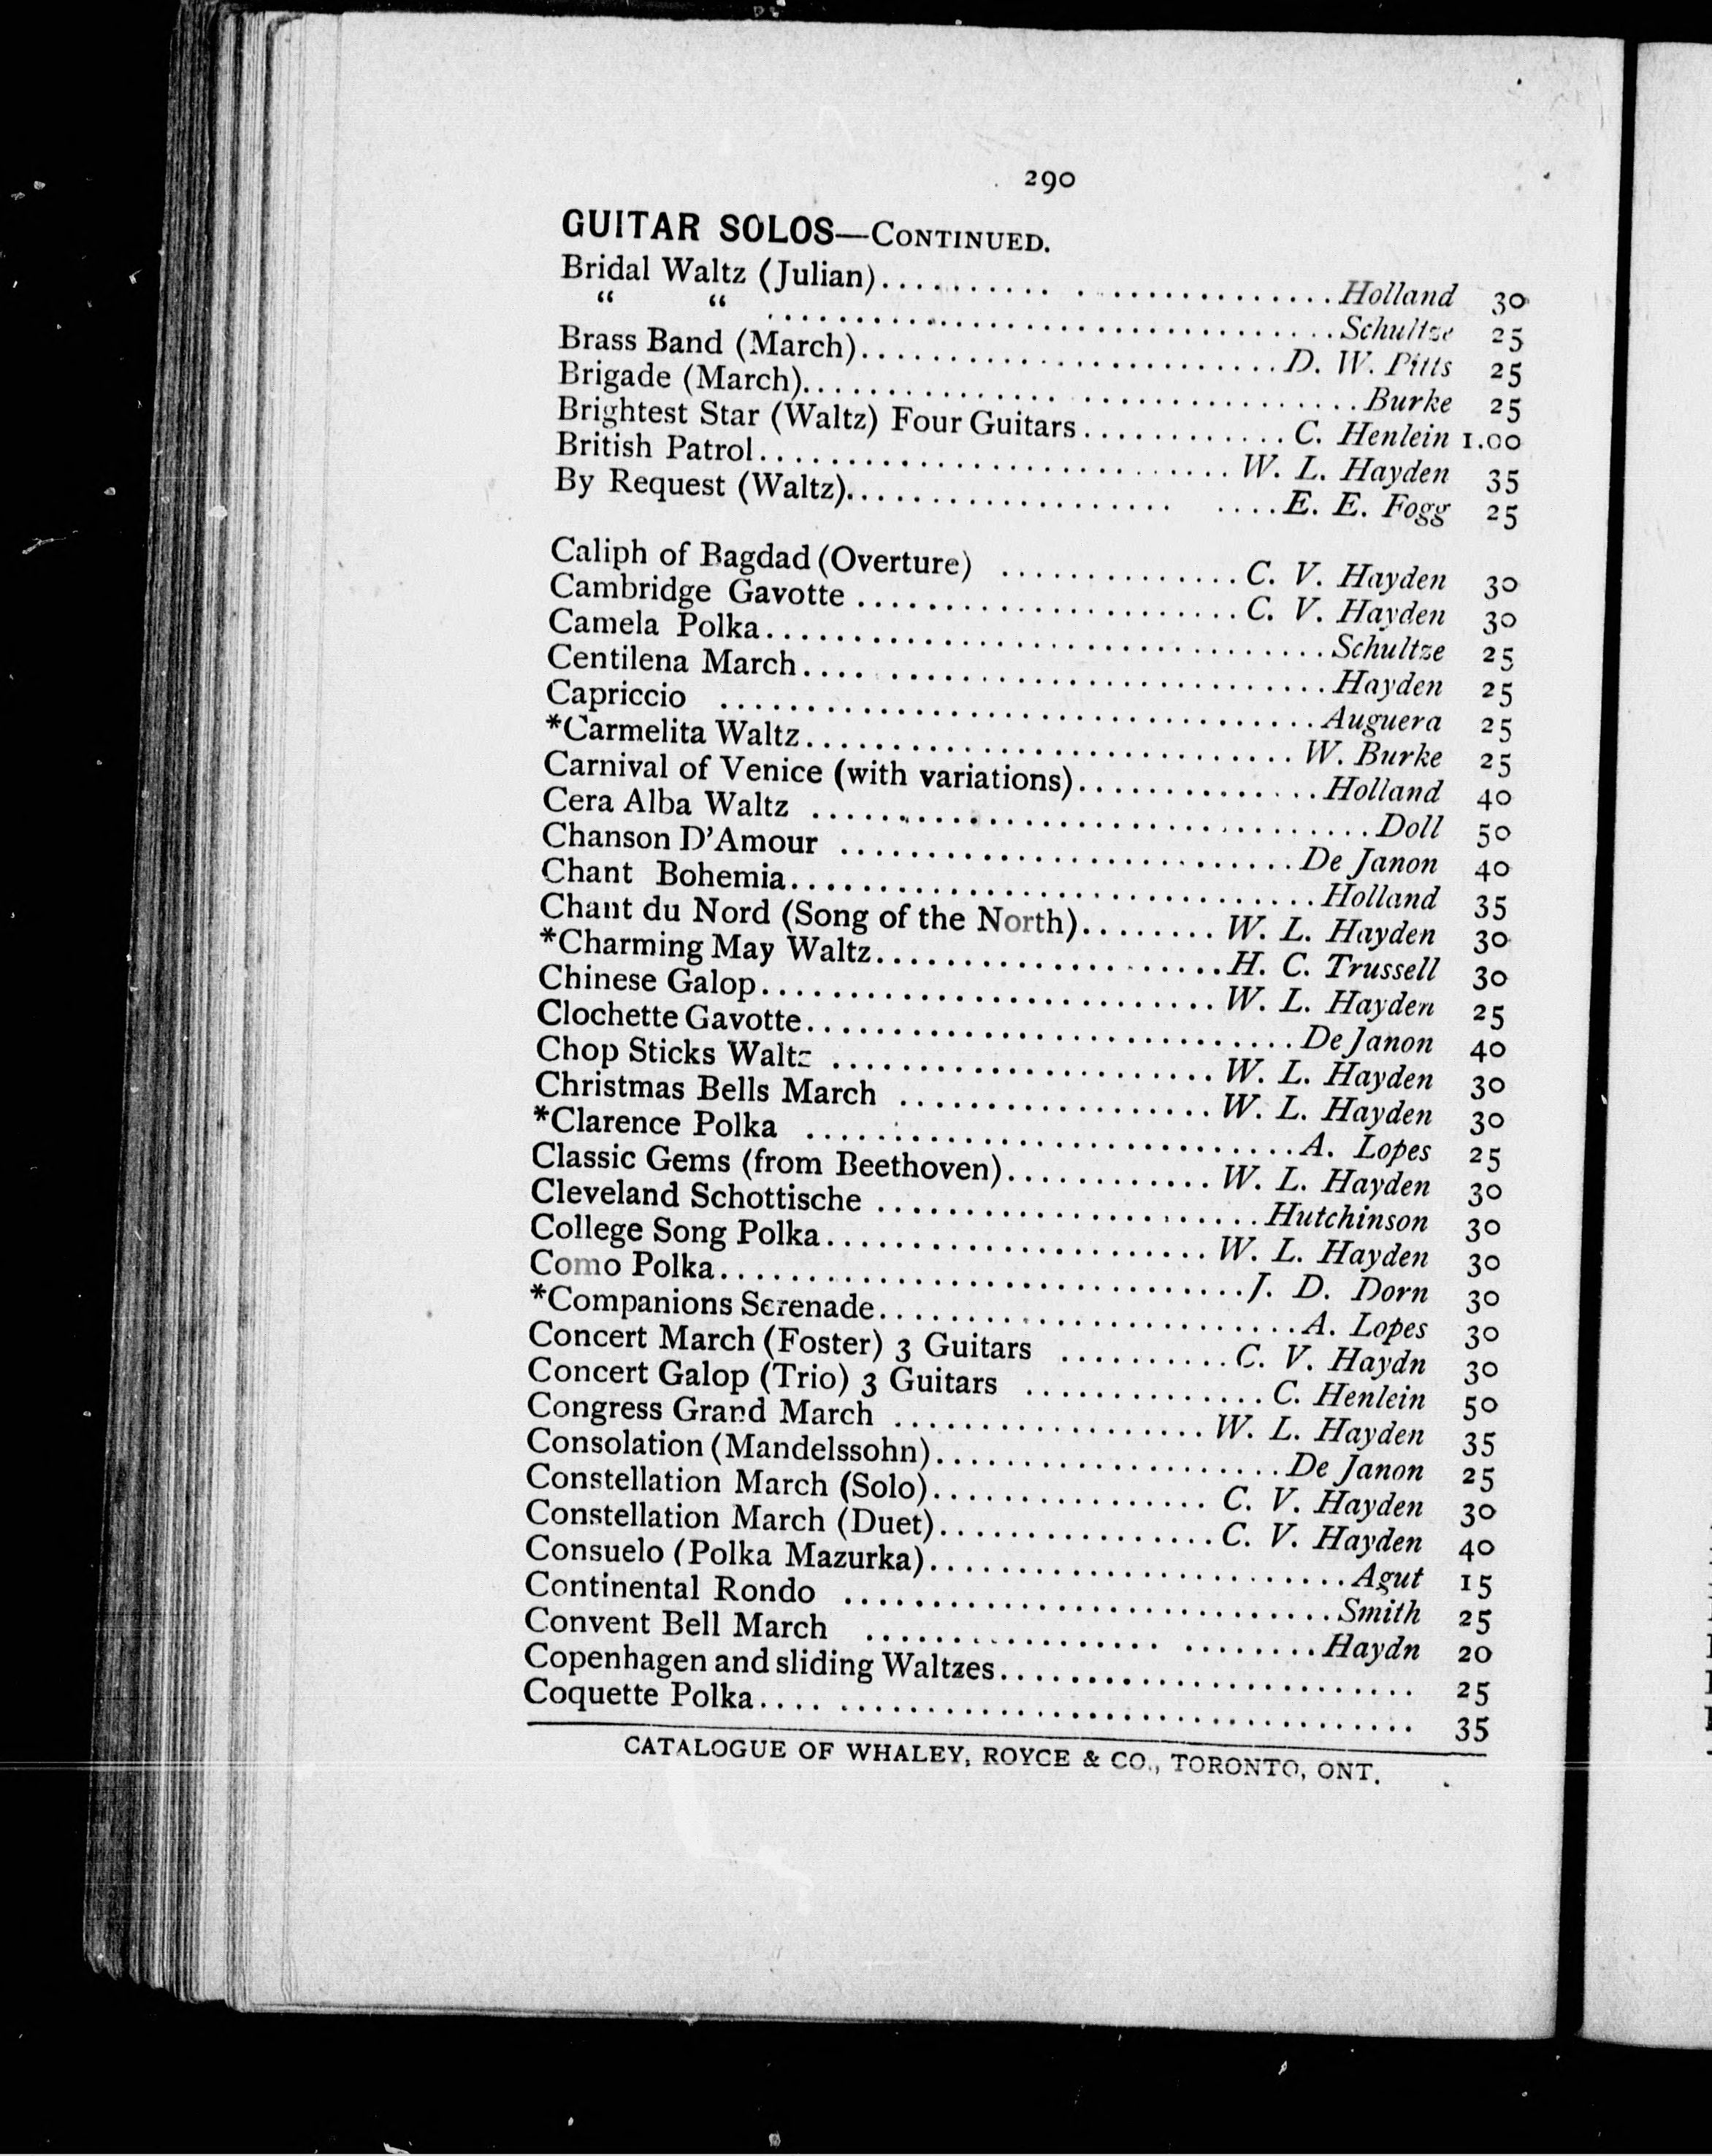 290
GUITAR SOLOS—CONTINUED.
Bridal Waltz (Julian).......... ...............Holland 30
“ “ ..................................Schultze 25
Brass Band (March)..............................D. W. Pitts 25
Brigade (March)..................................Burke 25
Brightest Star (Waltz) Four Guitars............C. Henlein 1.00
British Patrol...........................W. L. Hayden 35
By Request (Waltz)................... ....E. E. Fogg 25
Caliph of Bagdad (Overture) ..............C. V. Hayden 30
Cambridge Gavotte ......................C. V. Hayden 30
Camela Polka................................Schultze 25
Centilena March.... .........................Hayden 25
Capriccio ..................................Auguera 25
*Carmelita Waltz............................W. Burke 25
Carnival of Venice (with variations)..............Holland 40
Cera Alba Waltz ................................Doll 50
Chanson D’Amour ..........................De Janon 40
Chant Bohemia..............................Holland 35
Chant du Nord (Song of the North)........W. L. Hayden 30
*Charming May Waltz....................H. C. Trussell 30
Chinese Galop..........................W. L. Hayden 25
Clochette Gavotte............................De Janon 40
Chop Sticks Waltz ......................W. L. Hayden 30
Christmas Bells March ..................W. L. Hayden 30
*Clarence Polka ............................A. Lopes 25
Classic Gems (from Beethoven)............W. L. Hayden 30
Cleveland Schottische ......................Hutchinson 30
College Song Polka......................W. L. Hayden 30
Como Polka..............................J. D. Dorn 30
*Companions Serenade........................A. Lopes 30
Concert March (Foster) 3 Guitars ..........C. V. Haydn 30
Concert Galop (Trio) 3 Guitars ..............C. Henlein 50
Congress Grand March ..................W. L. Hayden 35
Consolation (Mandelssohn)....................De Janon 25
Constellation March (Solo)................C. V. Hayden 30
Constellation March (Duet)................C. V. Hayden 40
Consuelo (Polka Mazurka)........................Agut 15
Continental Rondo ............................Smith 25
Convent Bell March ................. ........Haydn 20
Copenhagen and sliding Waltzes........................ 25
Coquette Polka.... ................................. 35
CATALOGUE OF WHALEY, ROYCE & CO., TORONTO, ONT.